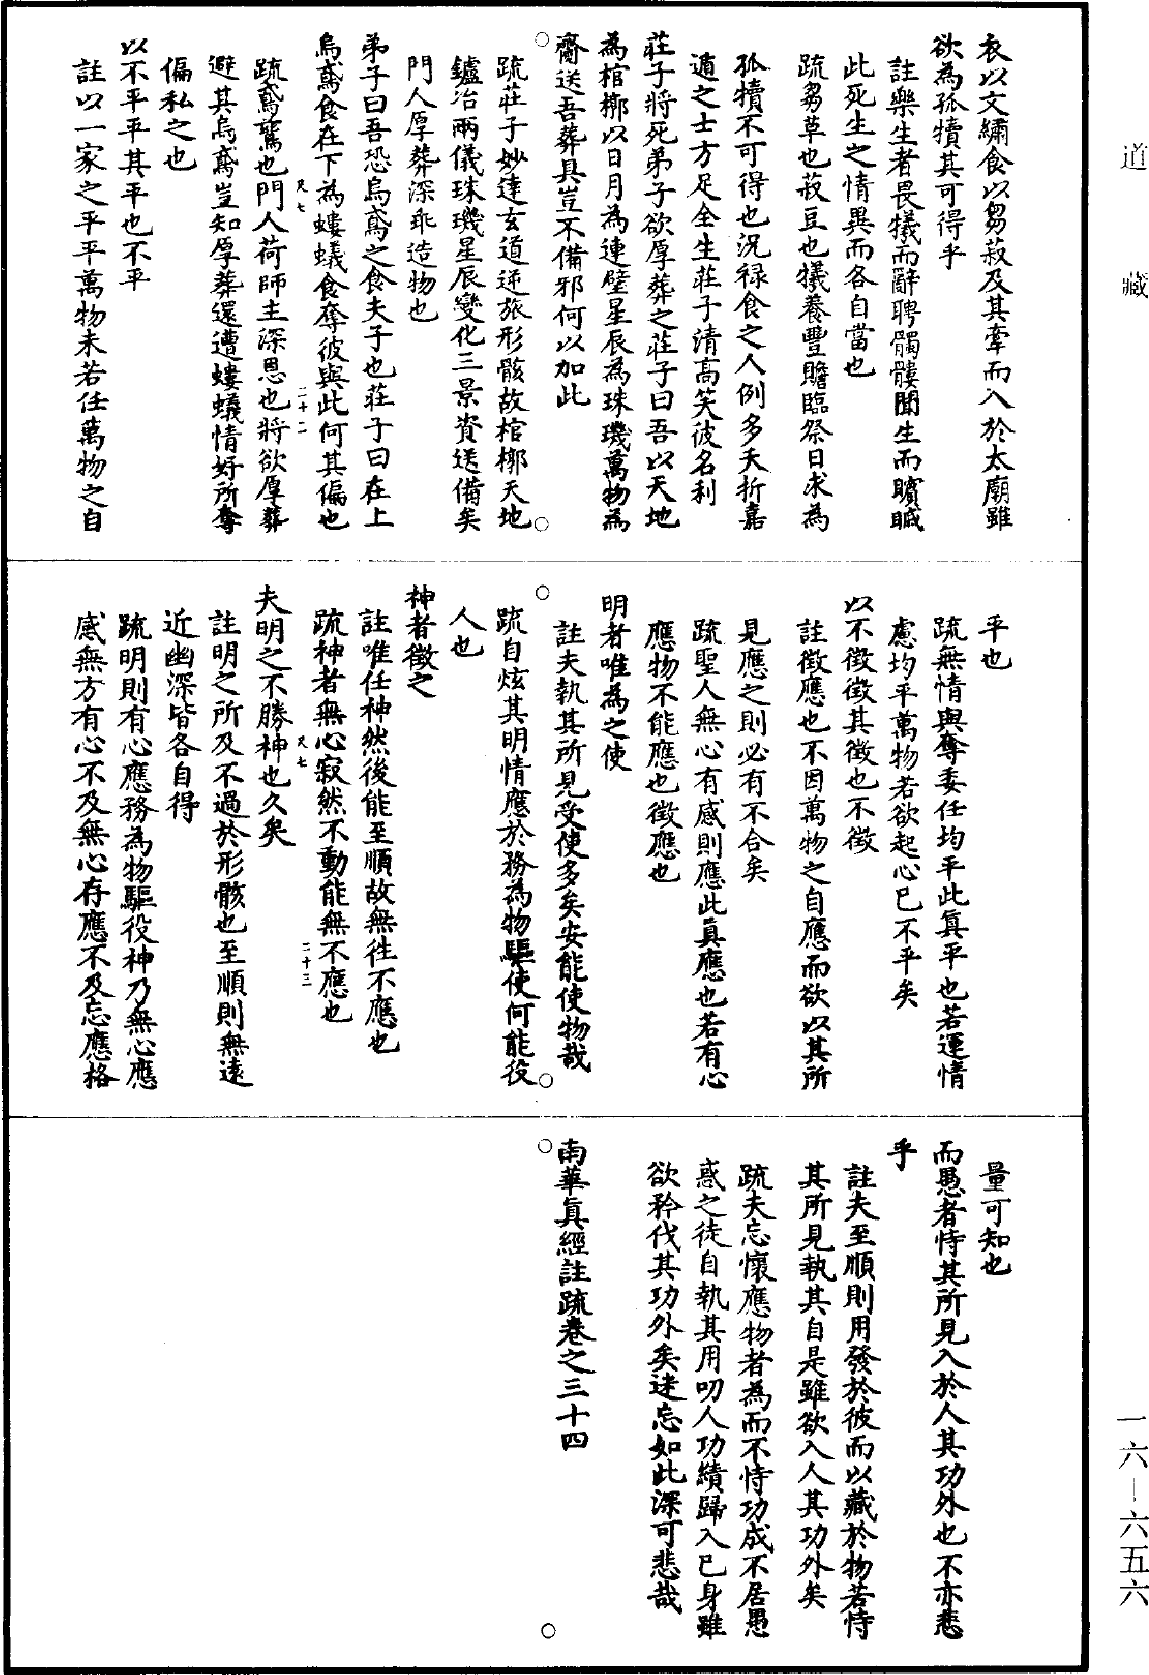 道藏
衣以文繡食以芻菽及其牽而入於太廟雖
欲為孤犢其可得乎
註樂生者畏犧而辭聘髑髏聞生而矉䁥
此死生之情異而各自當也
疏芻草也菽豆也犧養豐贍臨祭日求為
孤犢不可得也況禄食之人例多夭折嘉
遁之士方足全生莊子清高笑彼名利
莊子將死弟子欲厚葬之莊子曰吾以天地
為棺槨以日月為連璧星辰為珠璣萬物為
齎送吾葬具豈不備邪何以加此
疏莊子妙達玄道逆旅形骸故棺槨天地
鑪冶兩儀珠璣星辰變化三景資送備矣
門人厚葬深乖造物也
弟子曰吾恐烏鳶之食夫子也莊子曰在上
烏鳶食在下為螻蟻食奪彼與此何其偏也
尺七
二十二
疏鳶鴟也門人荷師主深恩也將欲厚葬
避其烏鳶豈知厚葬還遭螻蟻情好所奪
偏私之也
以不平平其平也不平
註以一家之平平萬物未若任萬物之自
平也
疏無情與奪委任均平此真平也若運情
慮均平萬物若欲起心已不平矣
以不徵徵其徵也不徵
註徵應也不因萬物之自應而欲以其所
見應之則必有不合矣
疏聖人無心有感則應此真應也若有心
應物不能應也徵應也
明者唯為之使
註夫執其所見受使多矣安能使物哉
疏自炫其明情應於務為物驅使何能役
人也
神者徵之
註唯任神然後能至順故無往不應也
疏神者無心寂然不動能無不應也
尺七
二十三
夫明之不勝神也久矣
註明之所及不過於形骸也至順則無遠
近幽深皆各自得
疏明則有心應務為物驅役神乃無心應
感無方有心不及無心存應不及忘應格
量可知也
而愚者恃其所見入於人其功外也不亦悲
乎
註夫至順則用發於彼而以藏於物若恃
其所見執其自是雖欲入人其功外矣
疏夫忘懷應物者為而不恃功成不居愚
惑之徒自執其用叨人功績歸入已身雖
欲矜伐其功外矣迷忘如此深可悲哉
南華真經註疏卷之三十四
一六—六五六